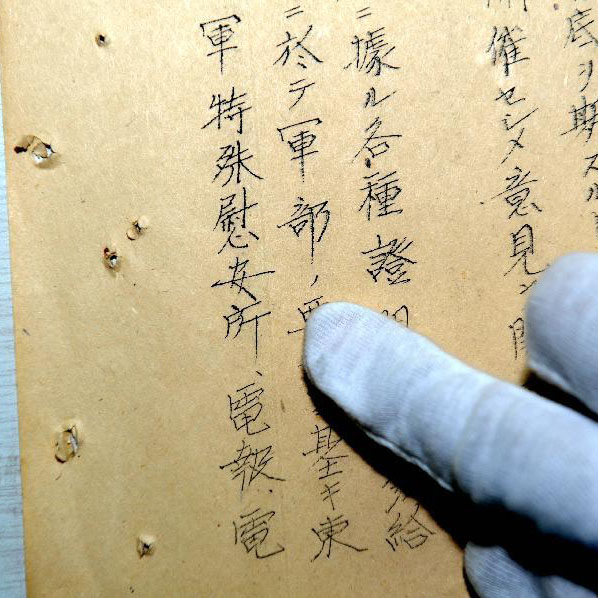 底ヲ期スル
催セシメ意見ヲ
ニ據ル各種證 給
ニ於テ軍部ノ 基キ東
軍特殊慰安所、電報、電